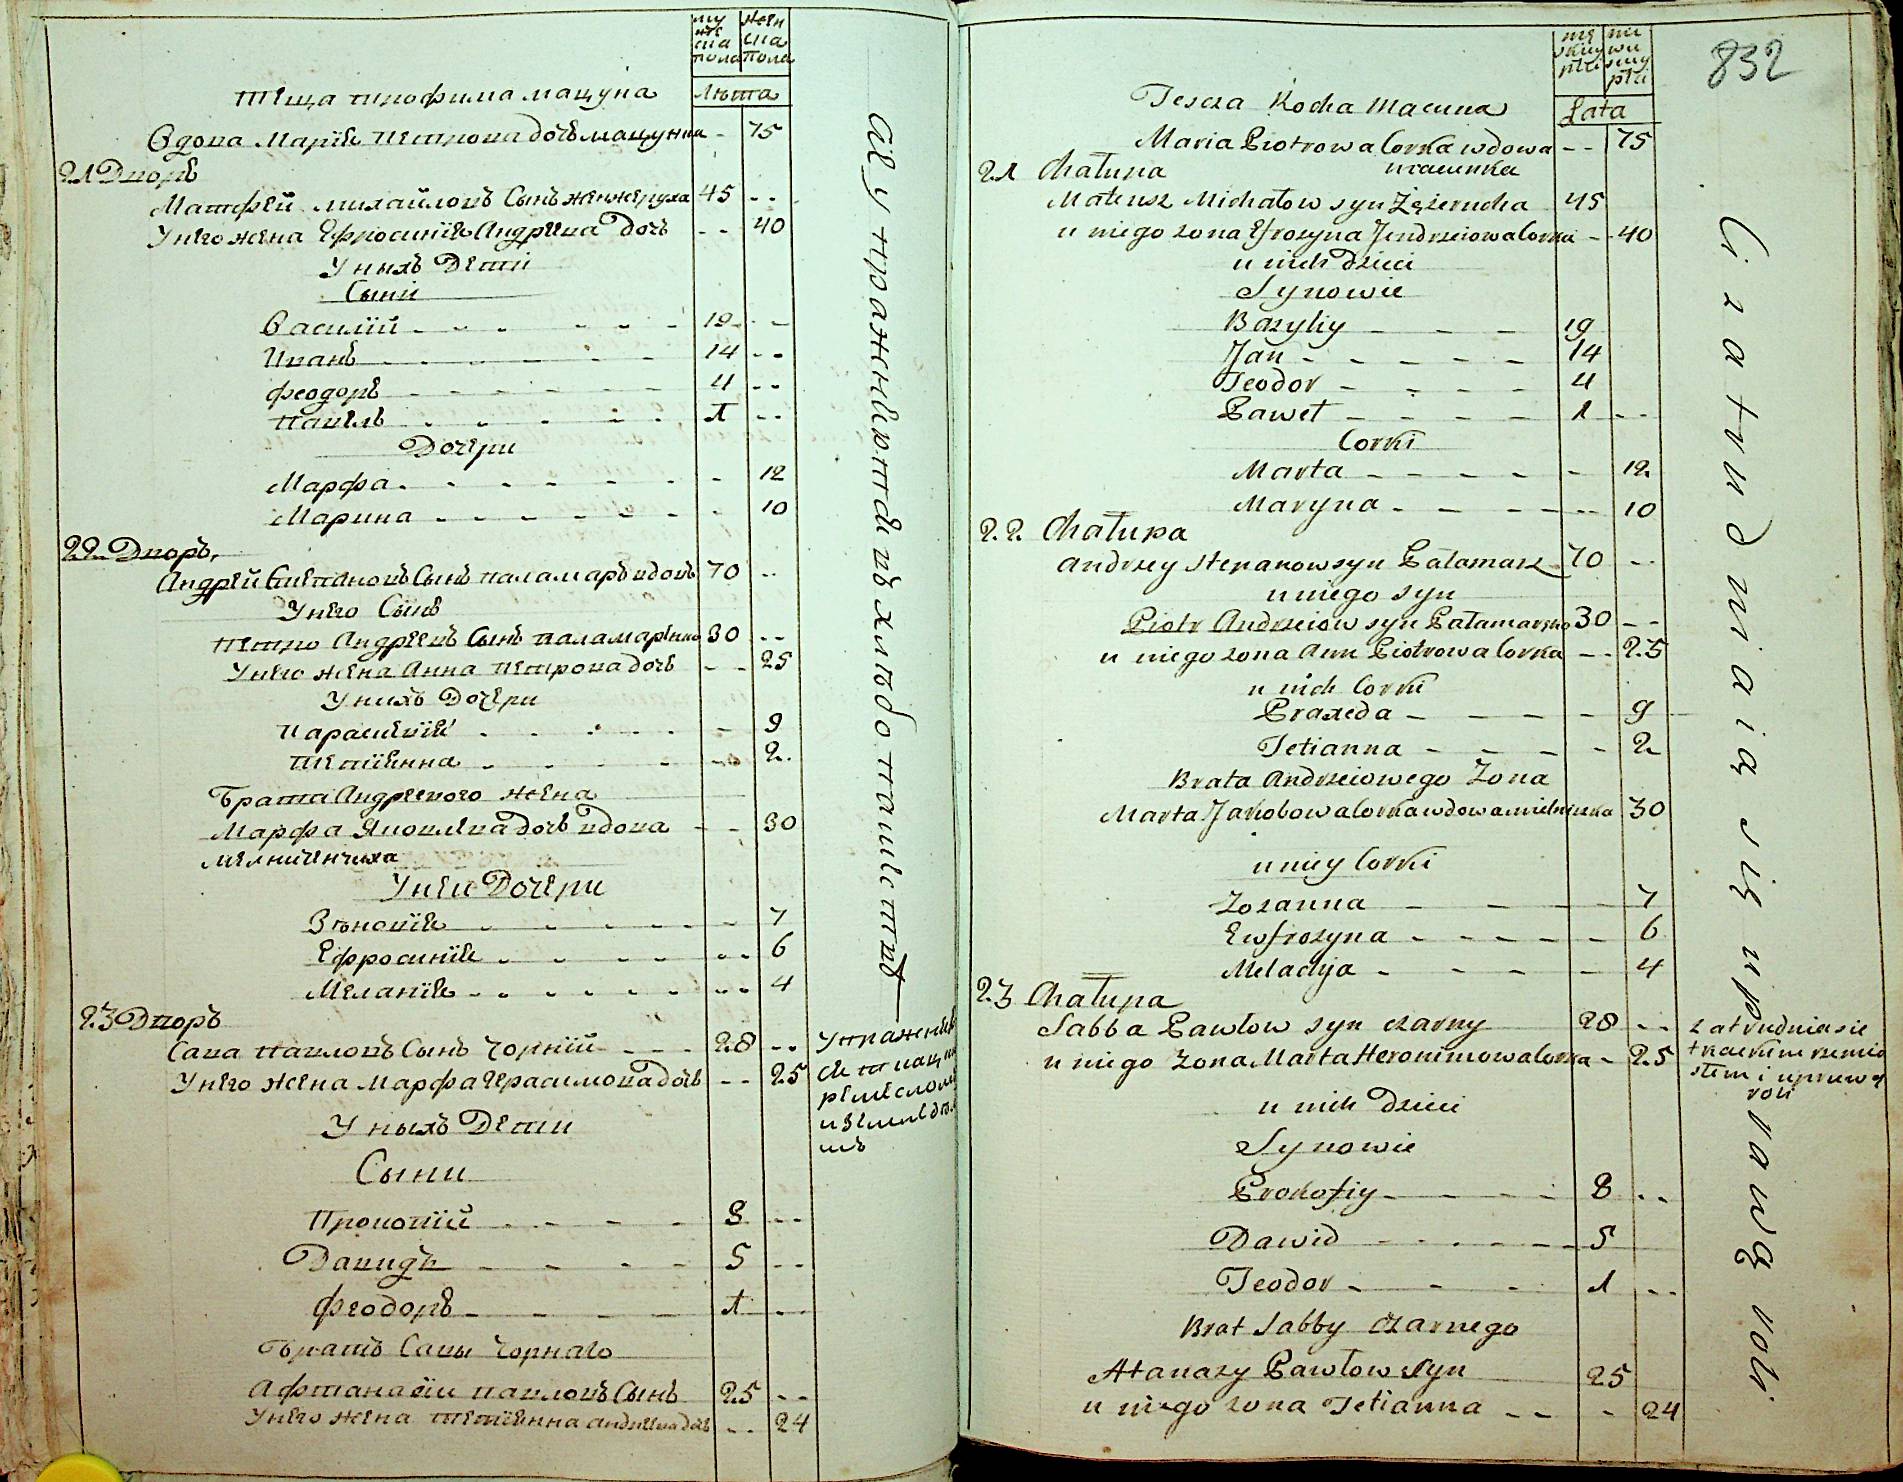 муж ска пола
женска пола
лѣта
Теща трофима мацуна
Вдова Марія Петрова дочь мацунка - 75
21 Дворъ
Матфей михайловъ Сынъ женжеруха 45 --
У него жена Ефросинія Андреева дочь -- 40
У ныхъ Дети
Сыни
Василій 19 --
Иванъ 14 --
Феодоръ 4 --
Павелъ 1 --
Дочери
Марфа - 12
Марина - 10
22 Дворъ
Андрей Степановъ Сынъ паламаръ вдовъ 70 --
У него Сынъ
Петро Андреевъ Сынъ паламаренко 30 --
У него жена Анна Петрова дочь -- 25
У нихъ Дочери
Парасковія - 9
Тетіянна -- 2
Брата Андреевого жена
Марфа Яковлева дочь вдова -- 30
мелниченчиха
У неи Дочери
Зѣновія - 7
Ефросинія -- 6
Меланія -- 4
23 Дворъ
Сава павловъ Сынъ Чорній 28 --
У него жена марфа Герасимова дочь -- 25
У ныхъ Дети
Сыни
Прокопій 8 --
Давидъ 5 --
Феодоръ 1 --
Братъ Савы Чорнаго
Афтанасій павловъ Сынъ 25 --
У него жена тетіянна андреева дочь -- 24
ся упражняются въ хлѣбопашествѣ
упражня
ся ткац
ремесломъ
и земледѣ
мъ
832
męskiey płci
niewieściey płci
Lata
Tescza Kocha Macuna
Maria Piotrowa Corka wdowa -- 75
macunka
21 Chałupa
Mateusz Michałow syn Zezerucha 45
u niego zona Efrozyna Jendrzeiowa Corka -- 40
u nich dzieci
Synowie
Bazyliy 19
Jan 14
Teodor 4
Paweł 1 --
Corki
Marta - 12
Maryna -- 10
22 Chałupa
Andrzey Stepanow syn Pałamarz 70 --
u niego syn
Piotr Andrzeiow syn Pałamarzko 30 --
u niego zona Ann Piotrowa Corka -- 25
u nich Corki
Praxeda - 9
Tetianna - 2
Brata Andrzeiowego Zona
Marta Jakobowa Corka wdowa mielniczka 30
u niey Corki
Zozanna - 7
Ewfrozyna - 6
Melachja - 4
23 Chałupa
Sabba Pawłow syn czarny 28 --
u niego zona Marta Heronimowa Corka - 25
u nich dzieci
Synowie
Prokofiy 8 --
Dawid 5
Teodor 1 --
Brat Sabby czarnego
Atanazy Pawłow syn 25
u niego zona Tetianna - 24
Ci zatrudniaią się uprawą roli
zatrudnia sie
tkackim rzemio
słem i uprawą
roli